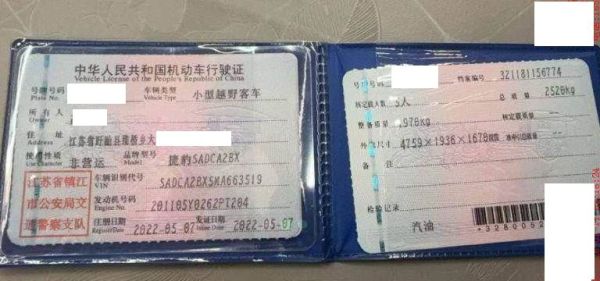 中华人民共和国机动车行驶证
Vehicle License of the People's Republic of China
号牌号码
Plate No.
车辆类型 小型越野客车
Vehicle Type
所有人
Owner
住址 江苏省盱眙县
Address
使用性质 非营运
Use Character
品牌型号 捷豹SADCA2BX
Model
江苏省镇江
市公安局交
通警察支队
车辆识别代号
VIN
发动机号码
Engine No.
注册日期 2022-05-07
Register Date
发证日期 2022-05-07
Issue Date
档案编号 321181156774
核定载人数 5人
总质量 2520kg
整备质量 978kg
核定载质量
外廓尺寸 4759×1936×1678
检验记录
汽油